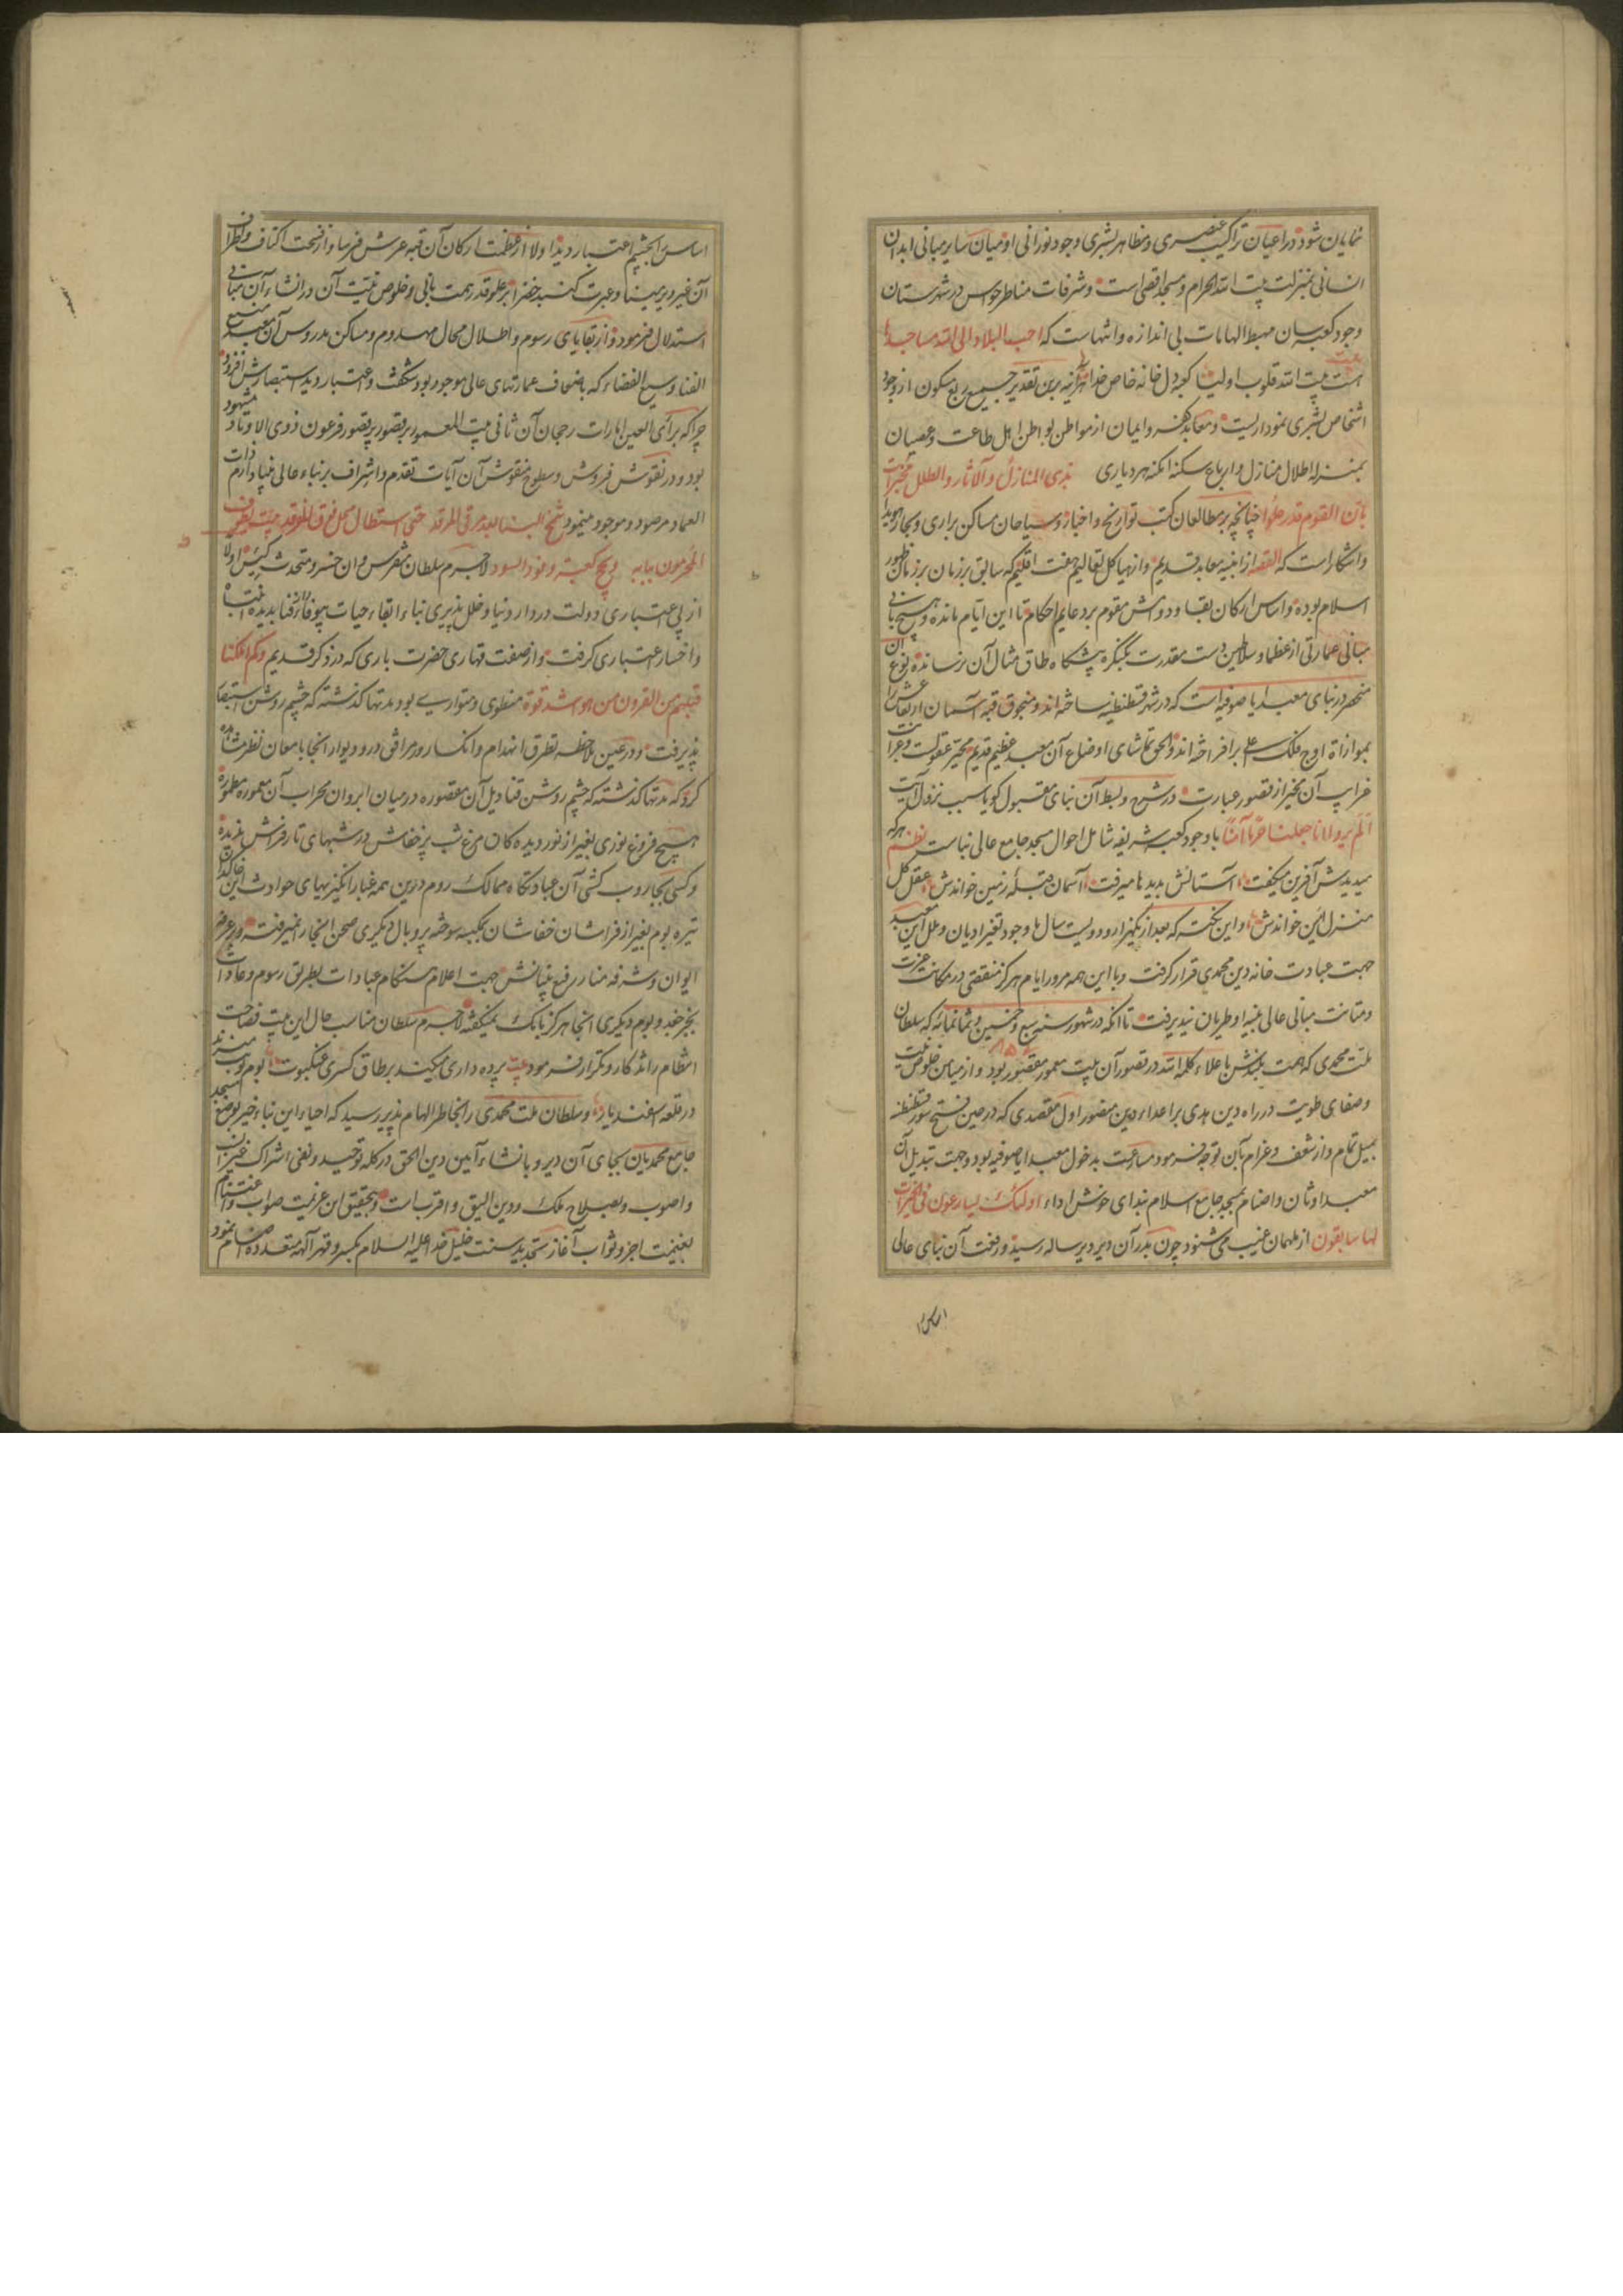 نمایان شود در اعیان تراکیب عنصری و مظاهر بشری وجود نورانی او میان سایر مبانی ابدان
انسانی بمنزلت بیت الله الحرام و مسجد اقصی است و شرفات مناظر حواس در شهرستان
وجود کعبه سان مهبط الهامات بی اندازه و انتهاست که احب البلاد الی الله مساجدها
بیت
هست بیت الله قلوب اولیا کعبه دل خانه خاص خدا هر آینه برین تقدیر جمیع ربع مسکون از وجود
اشخاص بشری نموداریست و معابد کفر و ایمان از مواطن بواطن اهل طاعت و عصیان
بمنزله اطلال منازل و ارباع سکنه امکنه هر دیاری نذری المنازل و الآثار و الطلل مخبرات
بان القوم قد رحلوا چنانچه بر مطالعان کتب تواریخ و اخبار و سیاحان مساکن براری و بحار هویدا
و آشکار است که القصه از ابنیه معابد قدیم و از هیاکل تعالیم هفت اقلیم که سابق بر زمان بر زمان ظهور
اسلام بوده و اساس ارکان بقا و دوامش مقوم بر دعایم احکام تا این ایام مانده و هیچ بانی
مبانی عمارتی از عظما و سلاطین دست مقدرت بکنگره پیشگاه طاق مثال آن نرسانده نوع آن
منحصر در بنای معبد ایا صوفیه است که در شهر قسطنطنیه ساخته اند و منجوق قبه آسمان ارتفاعش را
بموازاة اوج فلک اعلی برافراخته اند و الحق تماشای اوضاع آن معبد عظیم قدیم محیر عقولست و غرابت
غرایب آن مخبر از قصور عبارت در شرح و بسط آن بنای مقبول گویا سبب نزول آیت
الم یروا انا جعلنا حرما آمنا با وجود کعبه شریفه شامل احوال مسجد جامع عالی بناست نظم هر که
میدیدش آفرین میگفت آستانش بدیدها میرفت آسمان قبله زمین خواندش عقل کل
منزل امین خواندش و این نکته که بعد از یکهزار و دویست سال با وجود تغیر ادیان و ملل این معبد
جهت عبادت خانه دین محمدی قرار گرفت و با این همه مرور ایام هرگز منقصتی در مکانت عزت
و متانت مبانی عالی بنیه او طریان نپذیرفت تا آنکه در شهور سنه سبع و خمسین و ثمانمائه که سلطان
۸۵۷
ملت محمدی که همت بلندش با علاء کلمة الله در تصور آن بیت معمور مقصور بود و از میامن خلوص نیت
و صفای طویت در راه دین هدی بر اعداء دین منصور اول مقصدی که در حین فتح سور قسطنطنیه
بمیل تمام و از شعف و غرام بآن توجه فرمود مسارعت بدخول معبد ایا صوفیه بود و جهت تبدیل آن
معبد اوثان و اصنام بمسجد جامع اسلام بندای خوش اداء اولئک یسارعون فی الخیرات و هم
لها سابقون از ملهمان غیب می شنود چون بدر آن دیر دیرساله رسید و رفعت آن بنای عالی
اساس را
اساس را بچشم اعتبار دید اولا از عظمت ارکان آن قبه عرش فرسا و از فسحت اکناف و اطراف
آن غیر دیر مینا و عبرت گنبد خضرا بر علو قدر همت بانی و خلوص نیت آن در انشاء آن مبانی
استدلال فرمود و از بقایای رسوم و اطلال محال مهدوم و مساکن مدروس آن معبد منیع
الفنا وسیع الفضاء که باضعاف عمارتهای عالی موجود بود شگفت و اعتبار دید استبصارش افزود
چرا که برأی العین امارات رجحان آن ثانی بیت المعمور بر قصور پر قصور فرعون ذوی الاوتاد مشهود
بود و در نقوش فروش و سطوح منقوش آن آیات تقدم و اشراف بر بناء عالی بنیاد ارم ذات
العماد مرصود و موجود مینمود شمخ البنا بعد مرتقی المرقد حتی استطال محل فوق الفرقد بیت یطوف
المحرمون ببابه و یحج کعبته وفود السود لاجرم سلطان تفرس دان خسرو متحدث رئیس اولا
از بی اعتباری دولت در وار دنیا و خلل پذیری بناء ابقاء حیات بیوفاء فنا بدیده انتباه
و اخسار اعتباری گرفت و از صفت قهاری حضرت باری که در ذکر قدیم و کم اهلکنا
قبلهم من القرون من هو اشد قوة منطوی و متواریست بود مدتها گذشته که چشم روشن استبصار
پذیرفت و در عین ملاحظه تطرق انهدام و انکسار و مرافق در و دیوار آنجا بامعان نظر مشاهده
کرد که مدتها گذشته که چشم روشن قنادیل آن مقصوره در میان ابروان محراب آن معموره مطموره
هیچ فروغ نوری بغیر از نور دیده کان مرغ شب پر خفاش در شبهای تار فراش ندیده
و کسی بجاروب کشی آن عبادتگاه ممالک روم درین همه غبار انگیزیهای حوادث این خاکدان
تیره بوم بغیر از فراشان خفاشان بکبسه سوخته پر و بال دیگری صحن آنجا را نمیرفته و در عرض
ایوان و شرفه منار رفیع بنیانش جهت اعلام هنگام عبادات بطریق رسوم و عادات
بجز جغد و بوم دیگری آنجا هرگز بانگ نمیگفته لاجرم سلطان مناسب حال این بیت فصاحت
انتظام را تذکار و تکرار فرمود بیت پرده داری میکند بر طاق کسری عنکبوت بوم نوبت میزند
در قلعه اسفندیار و سلطان ملت محمدی را بخاطر الهام پذیر رسید که احیاء این بناء خیر بوضع مسجد
جامع محمدیان بجای آن دیر و بانشاء آیین دین الحق در کله توحید و نفی اشراک غیر انسب
و اصوب و بصلاح ملک و دین الیق و اقرب است و بتحقیق این عزیمت صواب و اغتنام
بغنیمت اجر و ثواب آغاز تجدید سنت خلیل خدا علیه السلام بکسر و قهر آلهه متعدده اصنام نمود